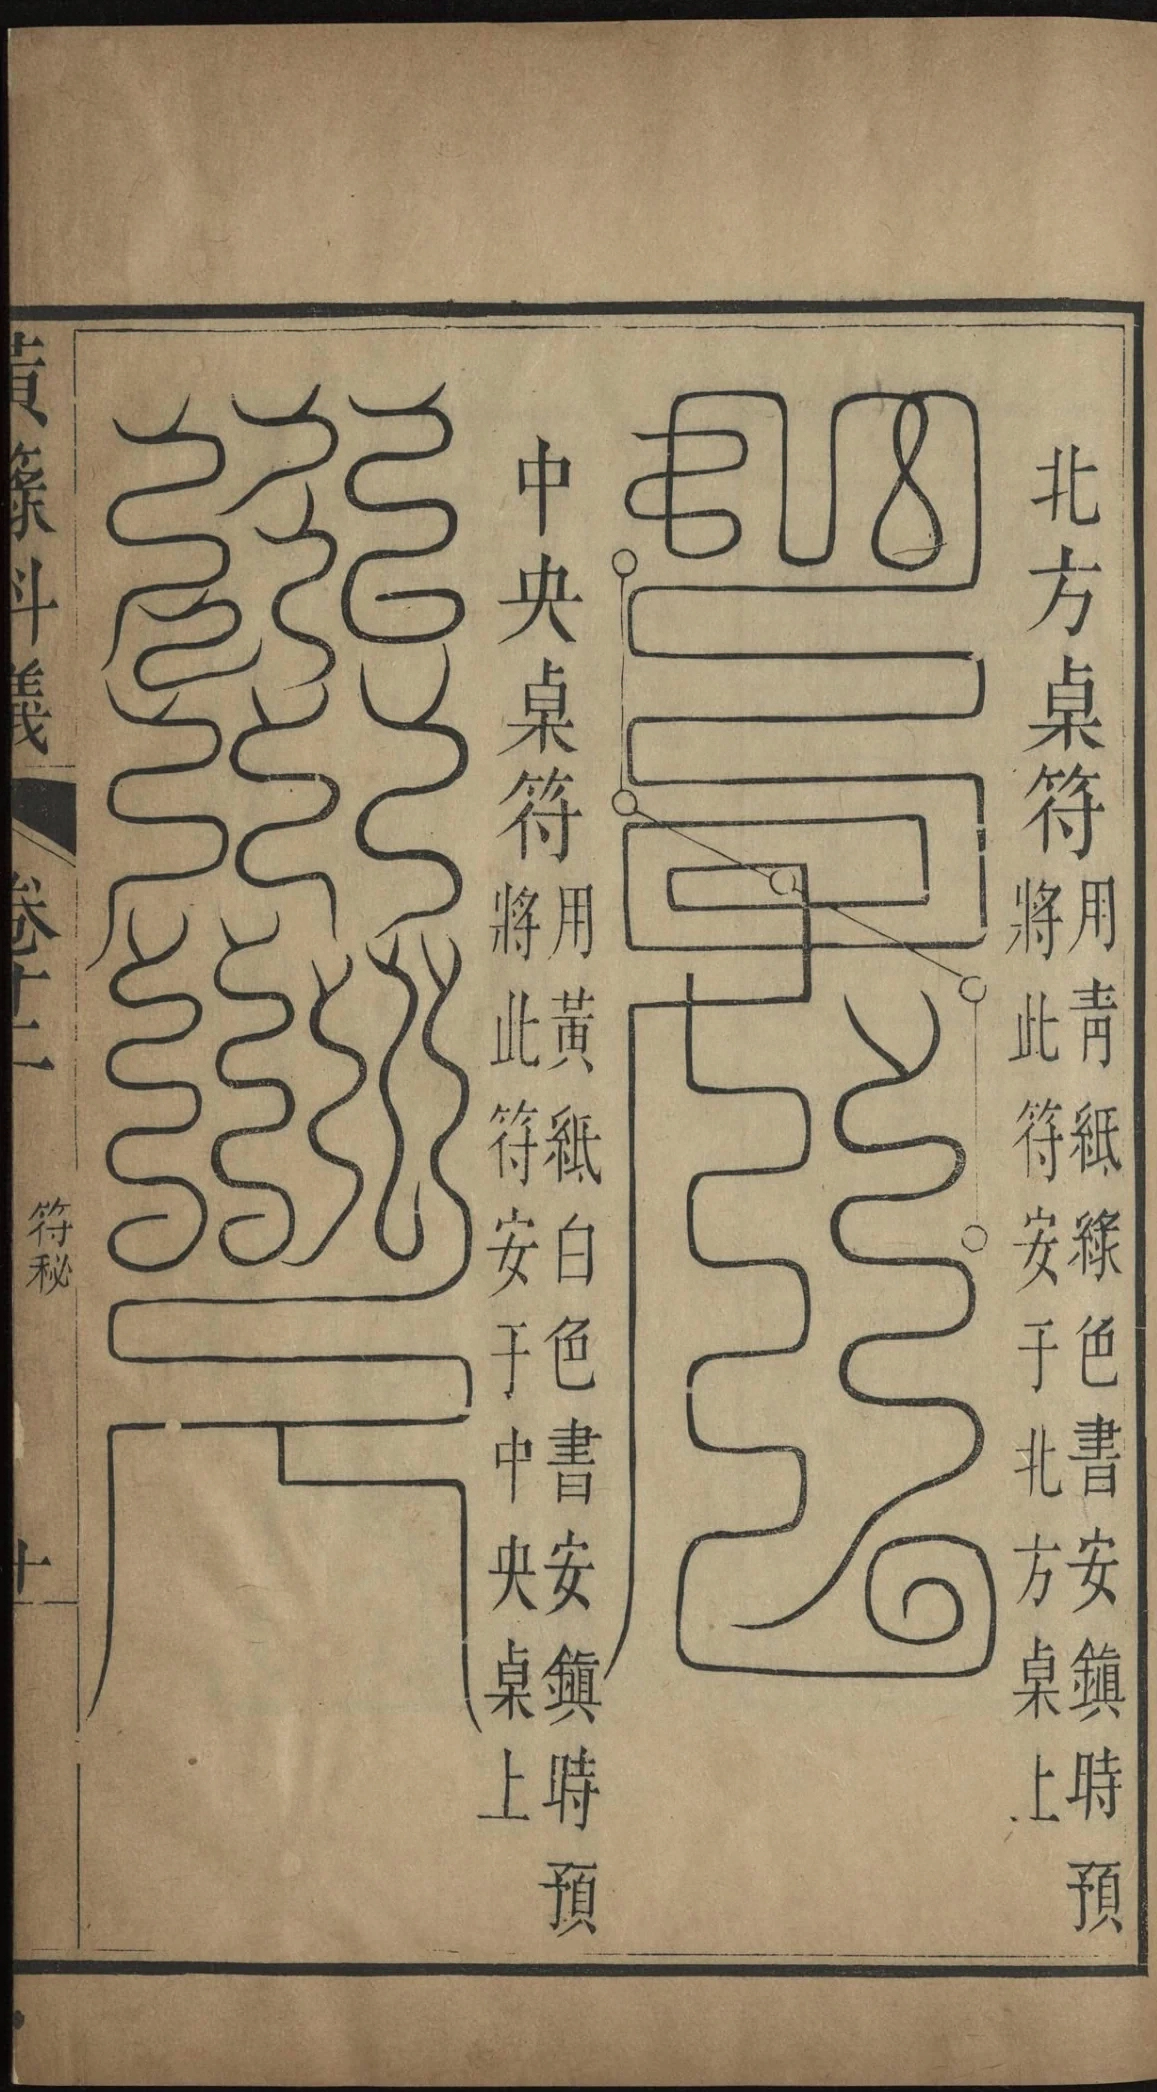 北方桌符
用青紙綠色書安鎮時預
將此符安于北方桌上
中央桌符
用黃紙白色書安鎮時預
將此符安于中央桌上
黃籙科儀
卷十二
符秘
十